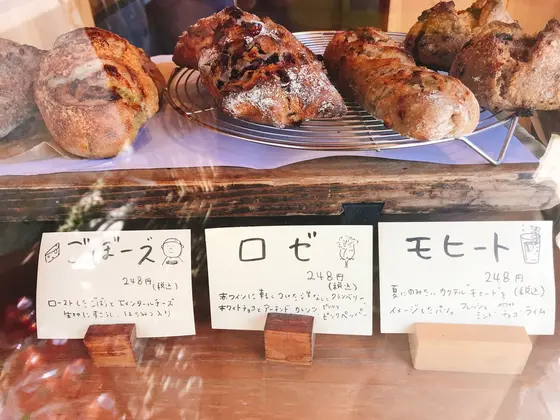 ごぼーズ
248円
(税込)
ローストしたごぼうとエメンタールチーズ
生地にすこし、はちみつ入り
ロゼ
248円
(税込)
赤ワインに軽くつけた洋なし、クランベリー
ホワイトチョコとアーモンド、カシューナッツ
ピンクペッパー
モヒート
248円
(税込)
夏にのみたい、カクテル"モヒート"を
イメージしたパン。フレッシュミント・ホワイトチョコ・ライム